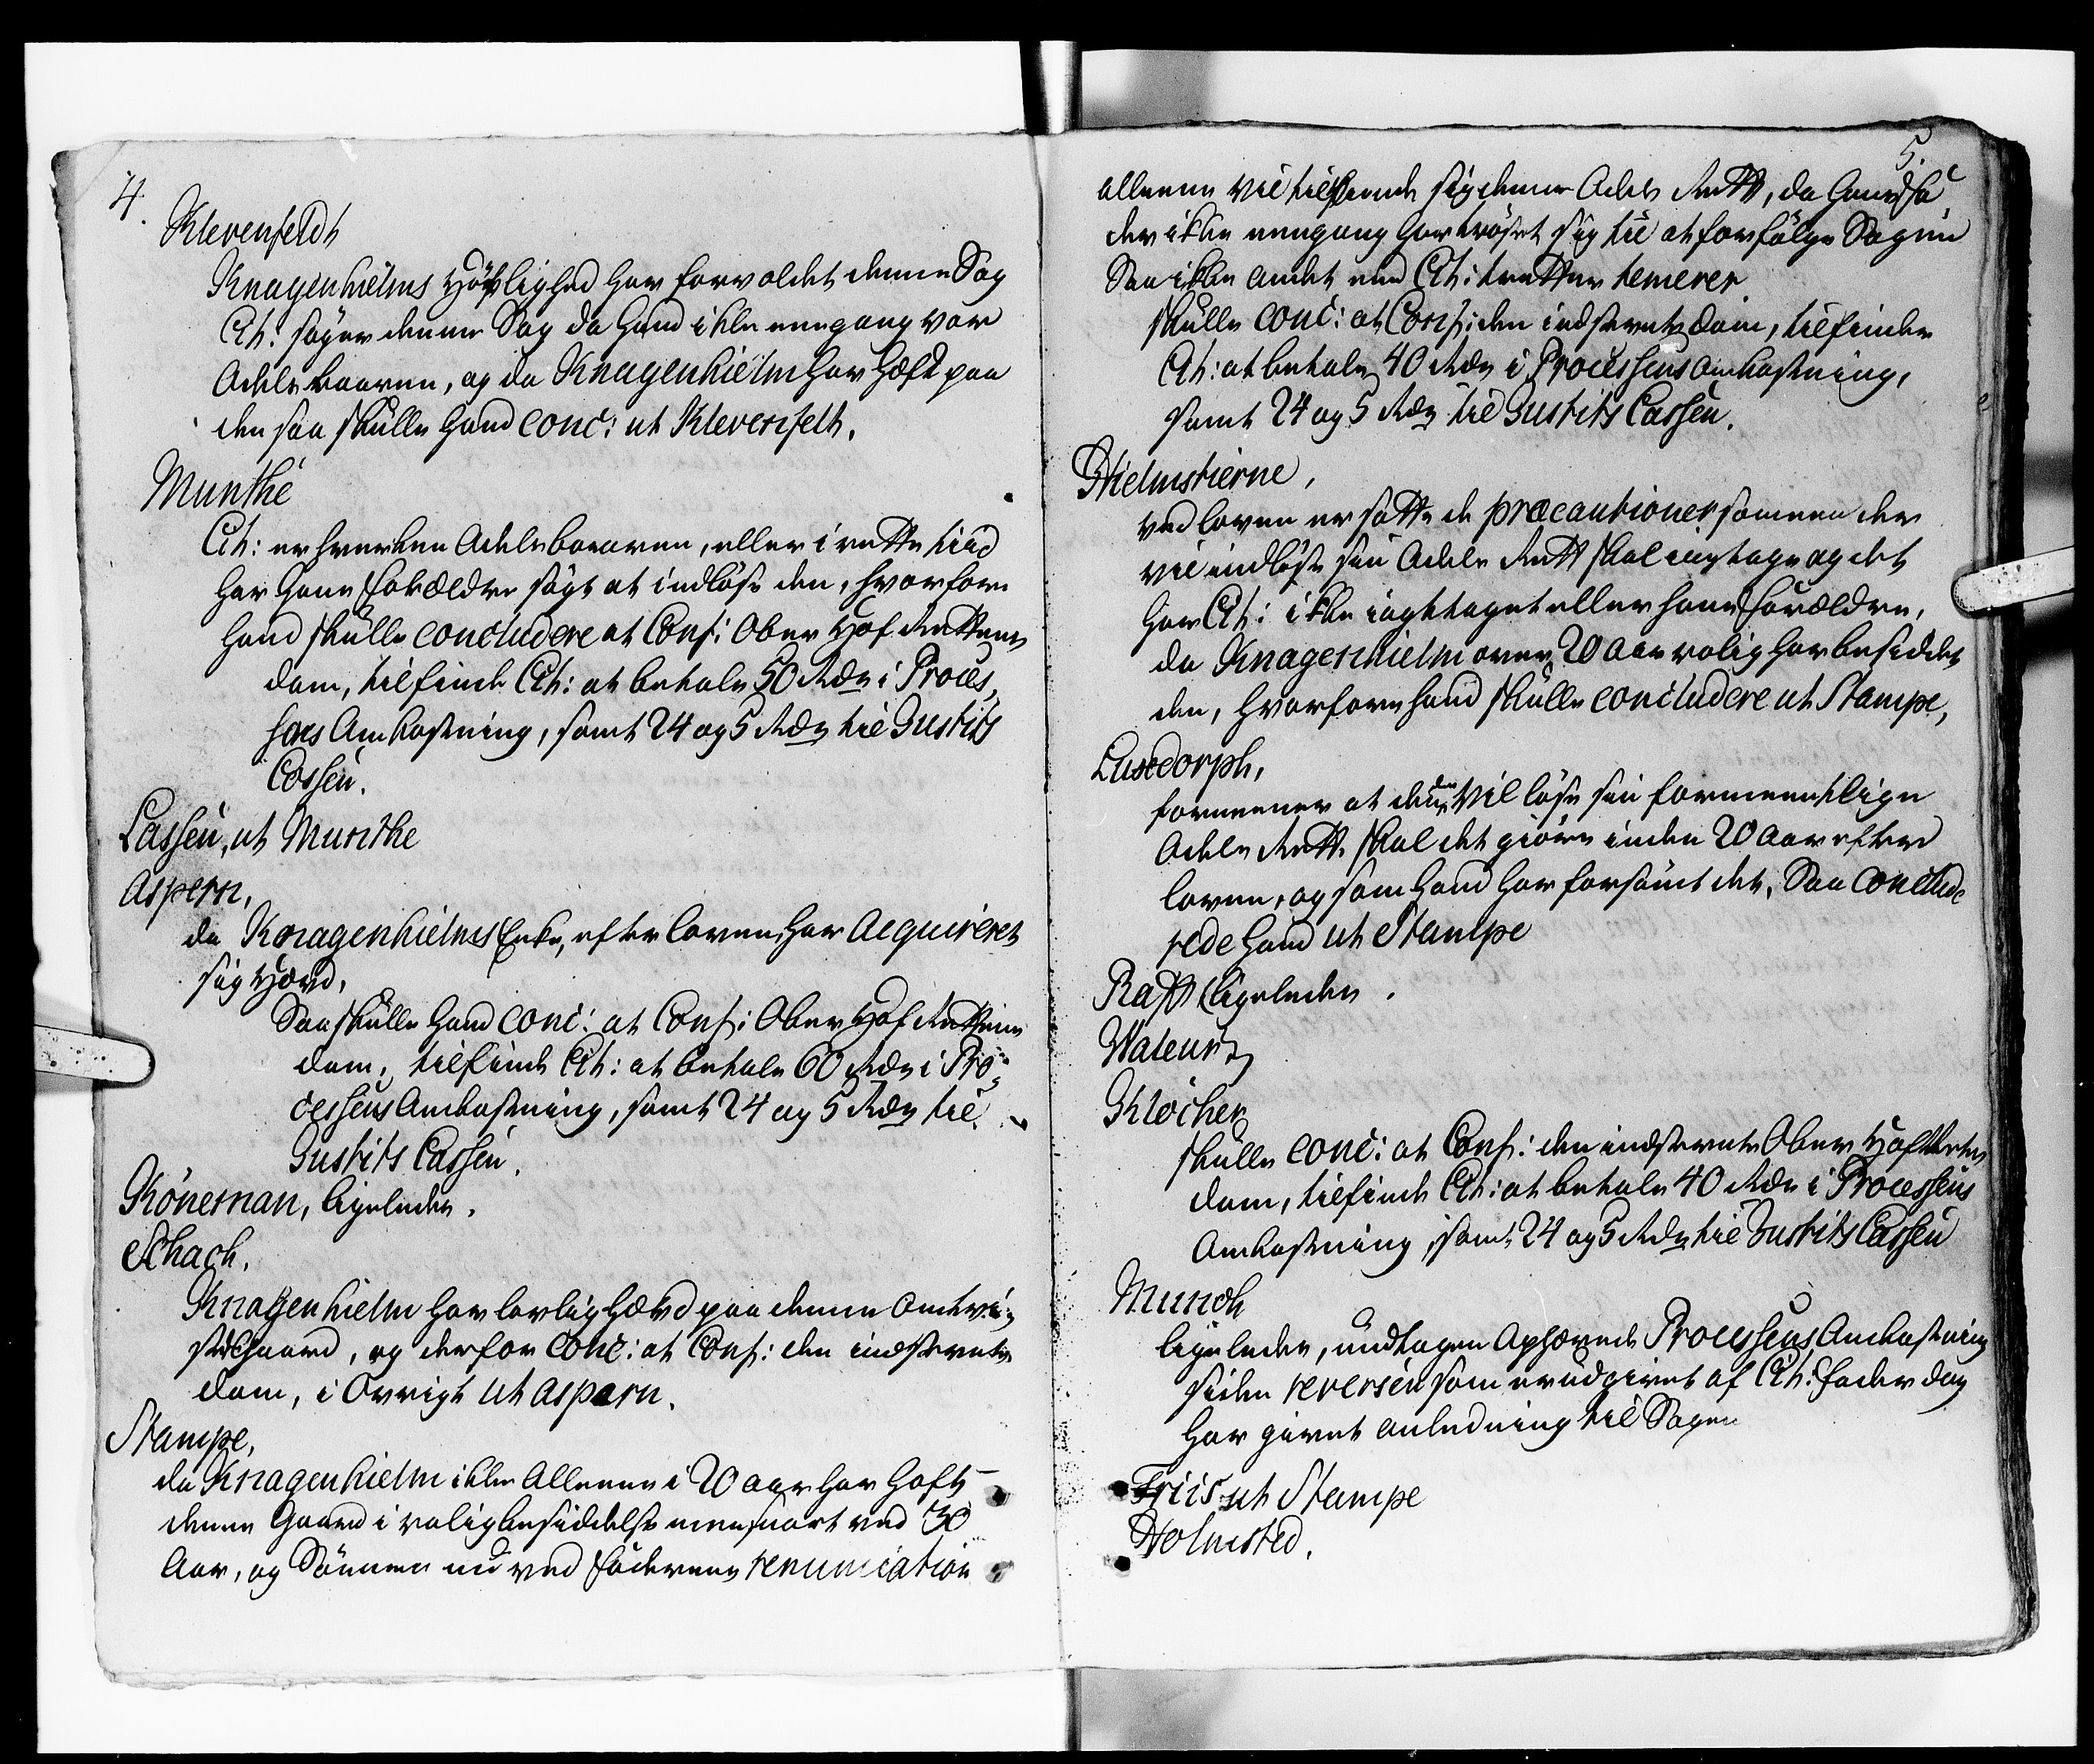 4.
Klevenfeldt
Knagenhielms Höflighed har forvoldet denne Sag
Cit: søger denne Sag da hand ikke eengang var
Odelsbaaren, og da Knagenhielm har Hæft paa
den saa skulle hand conc: ut Klevenfelt.
Munthe
Cit: er hverken Odelsbaaren, eller i rette tiid
har hans Forældre søgt at indløse den, hvorfore
hand skulle concludere at Conf: Ober Hof Rettens
dom, tilfinde Cit: at betale 50 Rdr i Proces,
sens Omkostning, samt 24 og 5 Rdr til Justits
Cassen.
Lassen, ut Munthe
Aspern,
da Knagenhielms Enke, efter loven, har Acquireret
sig Hævd,
Saa skulle hand conc: at Conf: Ober Hof Rettens
dom, tilfinde Cit: at betale 60 Rdr i Pro,
cessens Omkostning, samt 24 og 5 Rdr til
Justits Cassen.
Köneman, ligeledes.
Schack.
Knagenhielm har lovlig Hævd paa denne omtvi,
stede gaard, og derfor conc: at Conf: den indstevnte
dom, i Øvrigt ut Aspern.
Stampe,
da Knagenhielm ikke alleene i 20 aar har haft
denne Gaard i rolig besiddelse men snart ved 30
Aar, og Sønnen nu ved Faderens renunciation
5.
alleene vil tilvende sig denne Odels Rett, da hans Fa,
der ikke eengang har trøstet sig til at forfølge Sagen
Saa ikke andet end Cit: trætter temerer
skulle conc: at Conf: den indstevnte Dom, tilfinde
Cit: at betale 40 Rdr i Processens Omkostning,
samt 24 og 5 Rdr til Justits Cassen.
Hielmstierne,
ved loven er satte de præcautioner som een der
vil indløse sin Odels Rett skal iagttage og det
har Cit: ikke iagttaget eller hans Forældre,
da Knagenhielm over 20 Aar rolig har besiddet
den, hvorfore hand skulle concludere ut Stampe,
Luxdorph,
formeener at den vil løse sin formeentlige
Odels Rett skal det giøre inden 20 Aar efter
loven, og som hand har forsømt det, Saa conclude
rede hand ut Stampe
Rafft ligeledes.
Wateur
Klöcher
skulle conc: at Conf: den indstevnte Ober Hof Retts
dom, tilfinde Cit: at betale 40 Rdr i Processens
Omkostning, samt 24 og 5 Rdr til Justits Cassen
Munch
ligeledes, undtagen Ophævede Processens Omkostning
siden reversen som er udgivet af Cit: Fader dog
har givet anledning til Sagen
Friis ut Stampe
Holmsted.